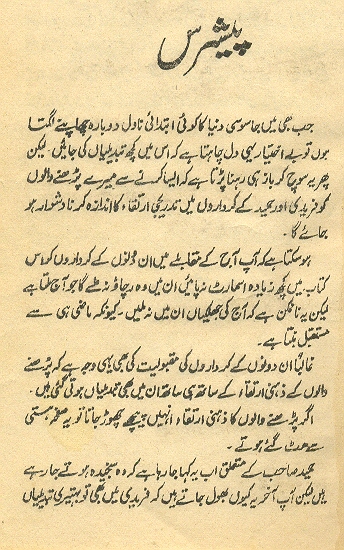 پیشرس
جب بھی میں جاسوسی دنیا کا کوئی ابتدائی ناول دوبارہ چھاپنے لگتا
ہوں تو بے اختیار یہی دل چاہتا ہے کہ اس میں کچھ تبدیلیاں کی جائیں۔ لیکن
پھر یہ سوچ کر باز ہی رہنا پڑتا ہے کہ ایسا کرنے سے میرے پڑھنے والوں
کو فریدی اور حمید کے کرداروں میں تدریجی ارتقاء کا اندازہ کرنا دشوار ہو
جائے گا۔
ہو سکتا ہے کہ آپ آج کے مقابلے میں ان دونوں کے کرداروں کو اس
کتاب میں کچھ زیادہ اسمارٹ نہ پائیں ان میں وہ رچاؤ نہ ملے گا جو آج ملتا ہے
لیکن یہ ناممکن ہے کہ آج کی جھلکیاں ان میں نہ ملیں۔ کیونکہ ماضی ہی سے
مستقبل بنتا ہے۔
غالباً ان دونوں کے کرداروں کی مقبولیت کی بھی یہی وجہ ہے کہ پڑھنے
والوں کے ذہنی ارتقاء کے ساتھ ہی ساتھ ان میں بھی تبدیلیاں ہوتی گئی ہیں۔
اگر پڑھنے والوں کا ذہنی ارتقاء انہیں پیچھے چھوڑ جاتا تو یہ صفحہ ہستی
سے مٹ گئے ہوتے۔
حمید صاحب کے متعلق اب یہ کہا جا رہا ہے کہ وہ سنجیدہ ہوتے جا رہے
ہیں لیکن آپ آخر یہ کیوں بھول جاتے ہیں کہ فریدی میں بھی تو بہتیری تبدیلیاں